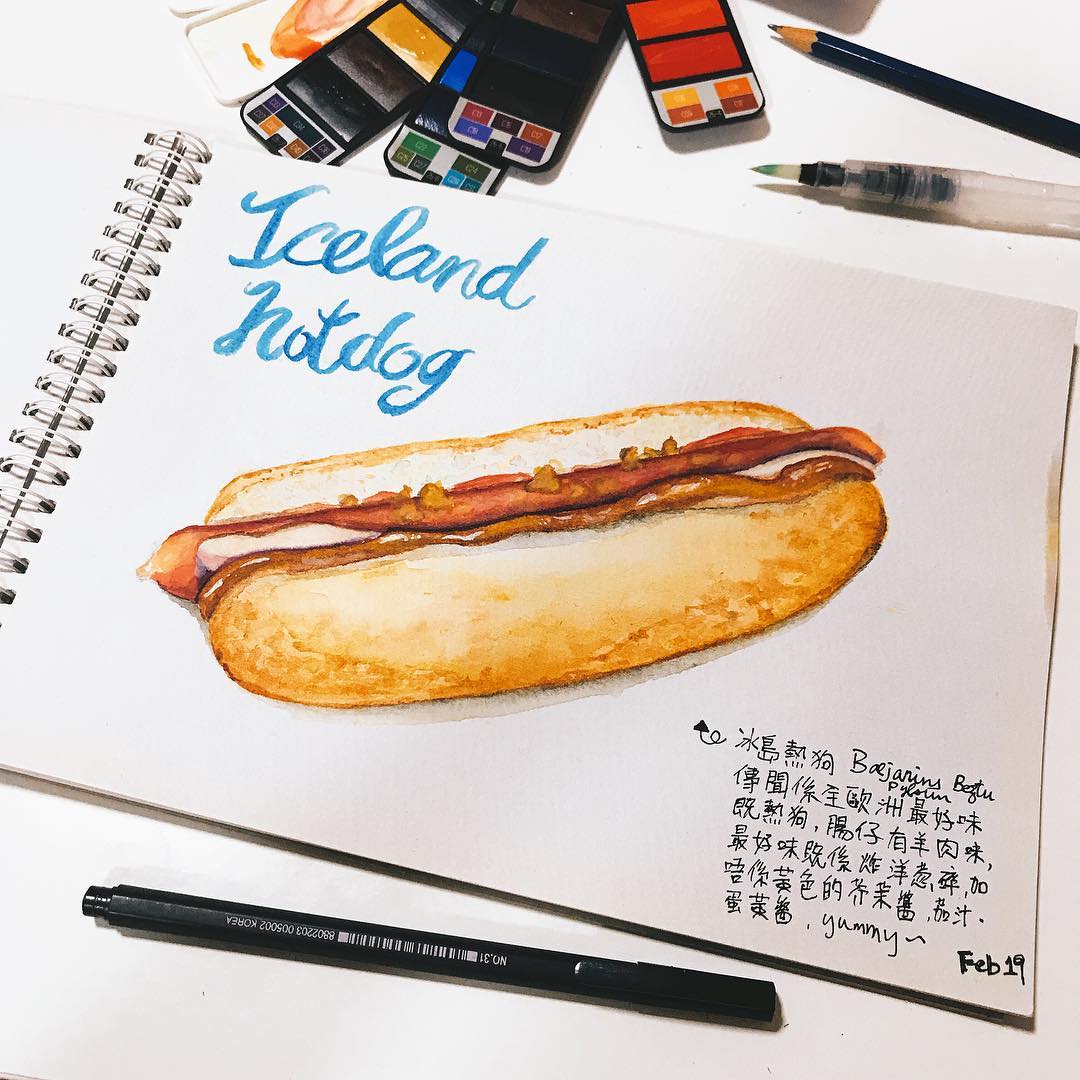 Iceland
hotdog
冰島熱狗 Bæjarins Beztu
Pylsur
傳聞係全歐洲最好味
既熱狗，腸仔有羊肉味，
最好味既係炸洋蔥碎，加
唔係黃色的芥茉醬，茄汁。
蛋黃醬，yummy~
Feb 19
NO.31
8802203 005002 KOREA